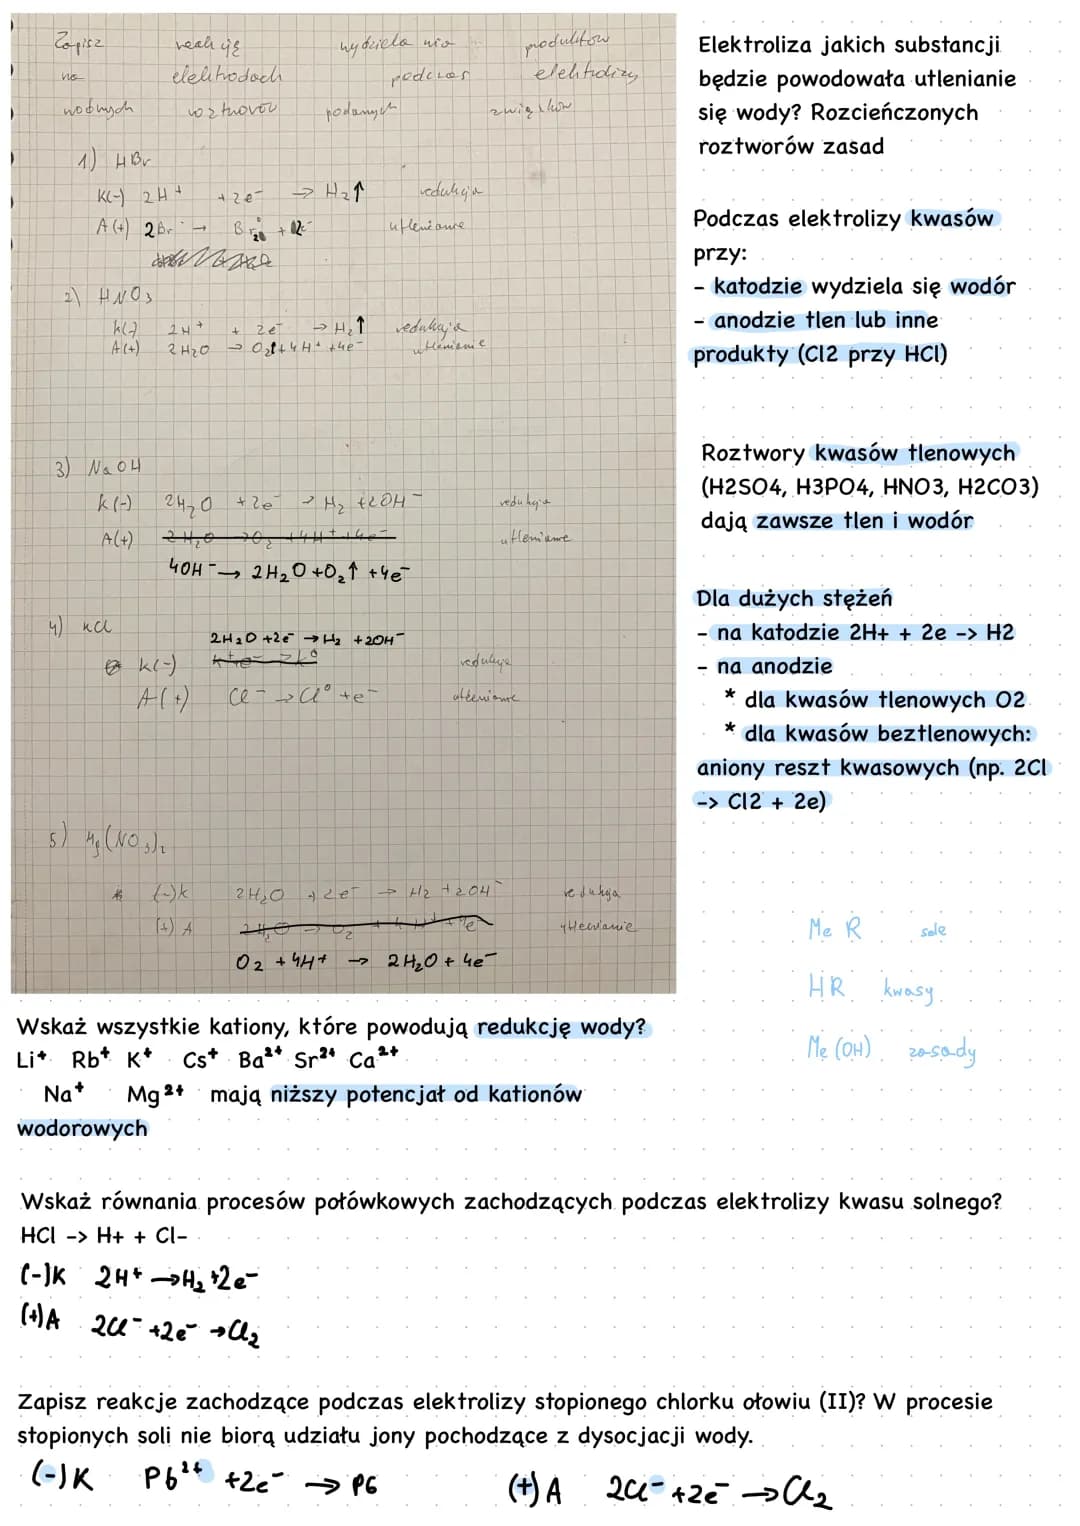 Zapisz reakcję wydziela nia produktów
na elektrodach podczas elektrolizy
wodnych roztworów podanych związków
1) HBr
K(-) 2H⁺ + 2e⁻ → H₂↑ redukcja
A(+) 2Br⁻ → Br₂⁰ + 2e⁻ utlenianie
2) HNO₃
K(-) 2H⁺ + 2e⁻ → H₂↑ redukcja
A(+) 2H₂O → O₂↑ + 4H⁺ + 4e⁻ utlenienie
3) NaOH
K(-) 2H₂O + 2e⁻ → H₂ + 2OH⁻ redukcja
A(+) 2H₂O → O₂ + 4H⁺ + 4e⁻ utlenianie
4OH⁻ → 2H₂O + O₂↑ + 4e⁻
4) KCl
2H₂O + 2e⁻ → H₂ + 2OH⁻
K(-) K⁺ e⁻ → K⁰ redukcja
A(+) Cl⁻ → Cl⁰ + e⁻ utlenianie
5) Mg(NO₃)₂
(-)K 2H₂O + 2e⁻ → H₂ + 2OH⁻ redukcja
(+)A 2H₂O → O₂ + 4H⁺ + 4e⁻ utlenianie
O₂ + 4H⁺ → 2H₂O + 4e⁻
Elektroliza jakich substancji
będzie powodowała utlenianie
się wody? Rozcieńczonych
roztworów zasad
Podczas elektrolizy kwasów
przy:
- katodzie wydziela się wodór
- anodzie tlen lub inne
produkty (Cl2 przy HCl)
Roztwory kwasów tlenowych
(H2SO4, H3PO4, HNO3, H2CO3)
dają zawsze tlen i wodór
Dla dużych stężeń
- na katodzie 2H+ + 2e -> H2
- na anodzie
* dla kwasów tlenowych O2
* dla kwasów beztlenowych:
aniony reszt kwasowych (np. 2Cl
-> Cl2 + 2e)
Me R sole
HR kwasy
Me (OH) zasady
Wskaż wszystkie kationy, które powodują redukcję wody?
Li⁺ Rb⁺ K⁺ Cs⁺ Ba²⁺ Sr²⁺ Ca²⁺
Na⁺ Mg²⁺ mają niższy potencjał od kationów
wodorowych
Wskaż równania procesów połówkowych zachodzących podczas elektrolizy kwasu solnego?
HCl -> H+ + Cl-
(-)K 2H⁺ → H₂ + 2e⁻
(+)A 2Cl⁻ + 2e⁻ → Cl₂
Zapisz reakcje zachodzące podczas elektrolizy stopionego chlorku ołowiu (II)? W procesie
stopionych soli nie biorą udziału jony pochodzące z dysocjacji wody.
(-)K Pb²⁺ + 2e⁻ → Pb (+)A 2Cl⁻ + 2e⁻ → Cl₂